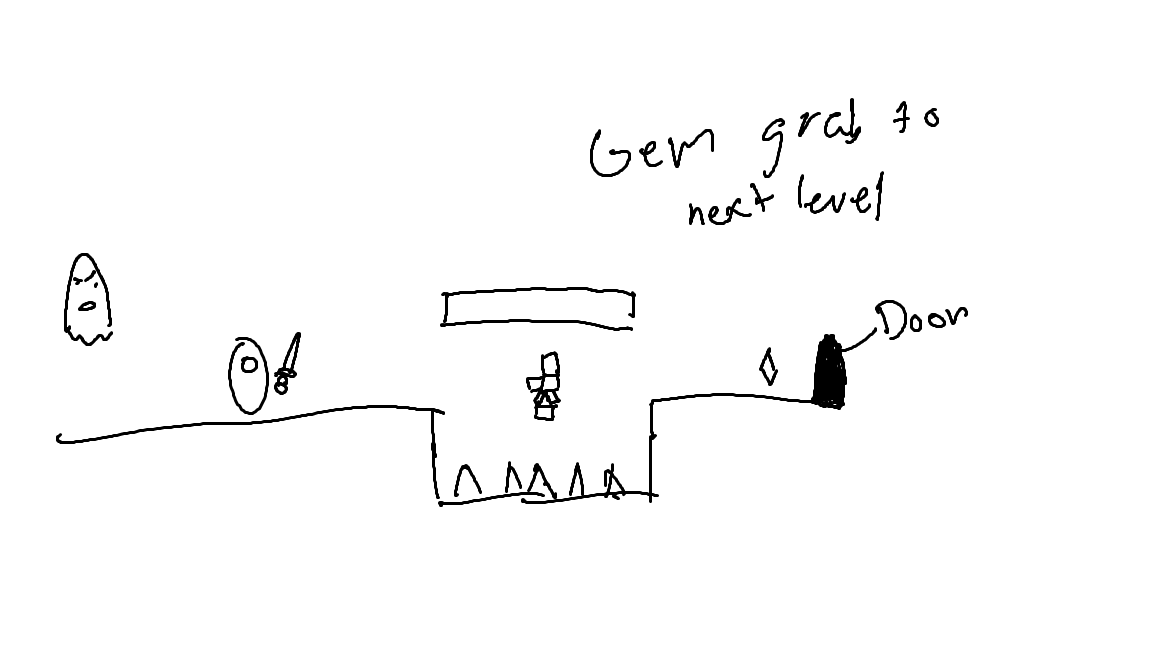 Gem grab to
next level
Door